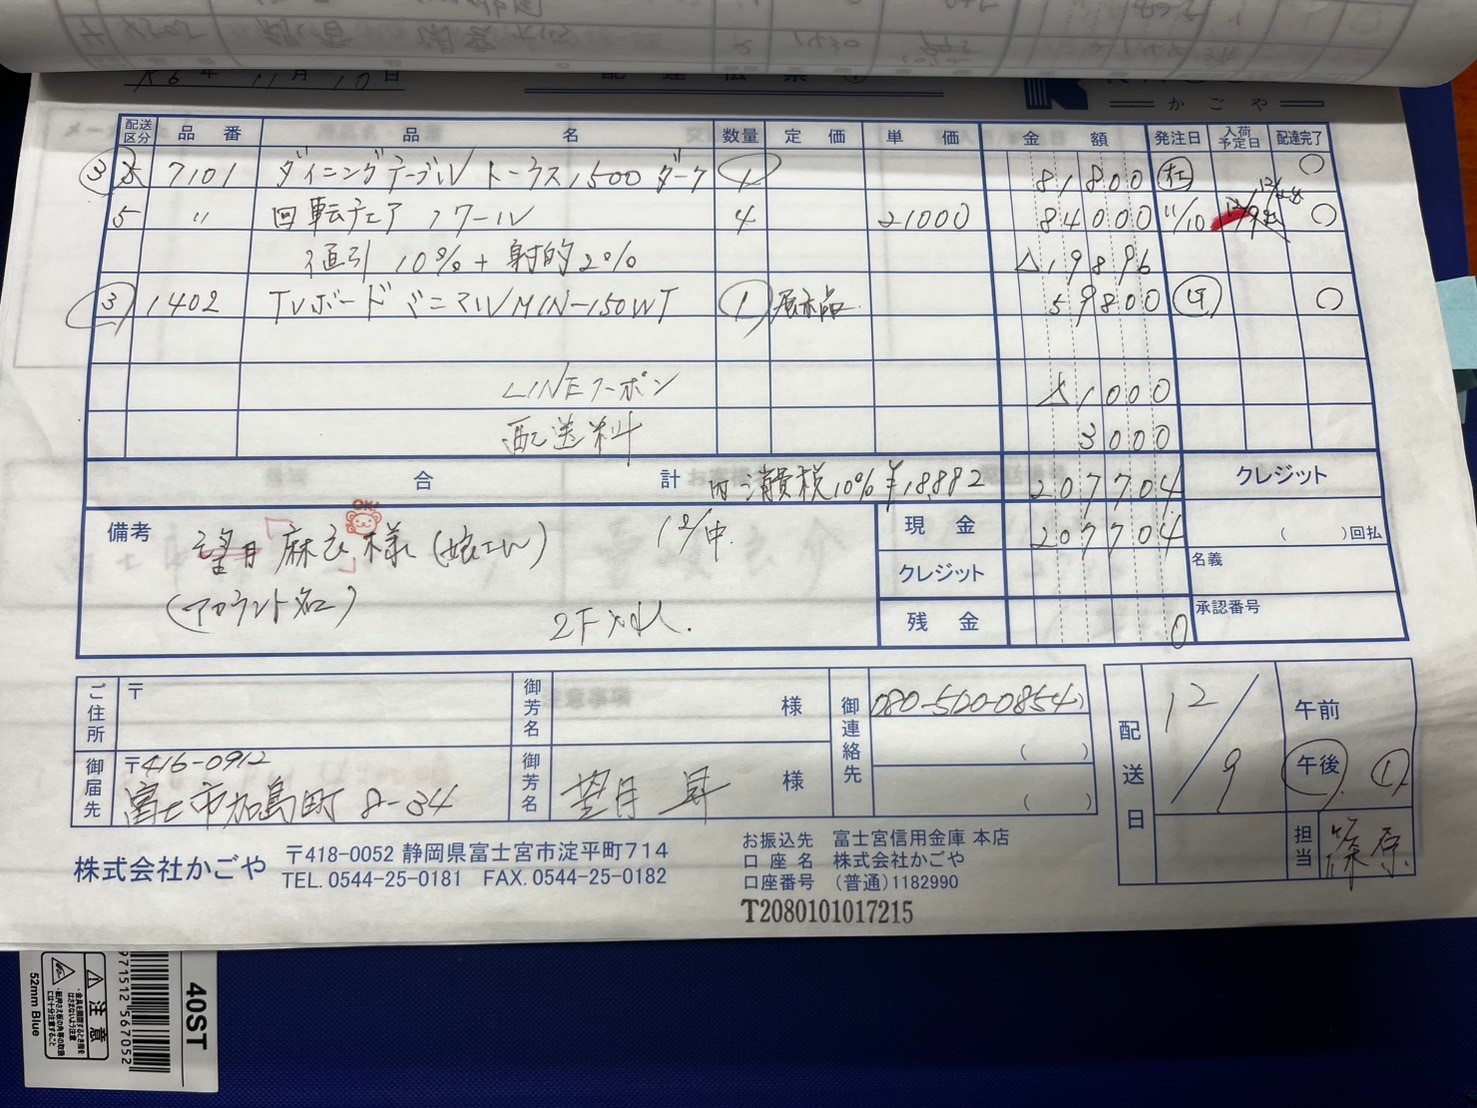 R6年 11月 10日
かごや
配送区分 品番 品名 数量 定価 単価 金額 発注日 入荷予定日 配達完了
③ 7101 ダイニングテーブル トーラス1500 ダーク 1 81800 在 ○
5 〃 回転チェア フール 4 21000 84000 11/10 ○
値引 10%+射的2% △19896
③ 1402 TVボード ミニマル MIN-150WT ① 展示品 59800 ○
LINEクーポン △1000
配送料 3000
合計 内消費税10% ¥18,882 207704 クレジット
備考 望月 麻衣 様 12/中. 現金 207704 ( )回払
OK!
(アカウント名) クレジット 名義
2F 残金 0 承認番号
ご住所 〒 御芳名 様 御連絡先 ( )
配送日 12/9 午前 午後 ①
御届先 〒416-0912 御芳名 望月 昇 様 ( )
富士市加島町 8-34
担当 篠原
株式会社かごや 〒418-0052 静岡県富士宮市淀平町714
TEL. 0544-25-0181 FAX. 0544-25-0182
お振込先 富士宮信用金庫 本店
口座名 株式会社かごや
口座番号 (普通)1182990
T2080101017215
40ST
971512 567052
注意
52mm Blue